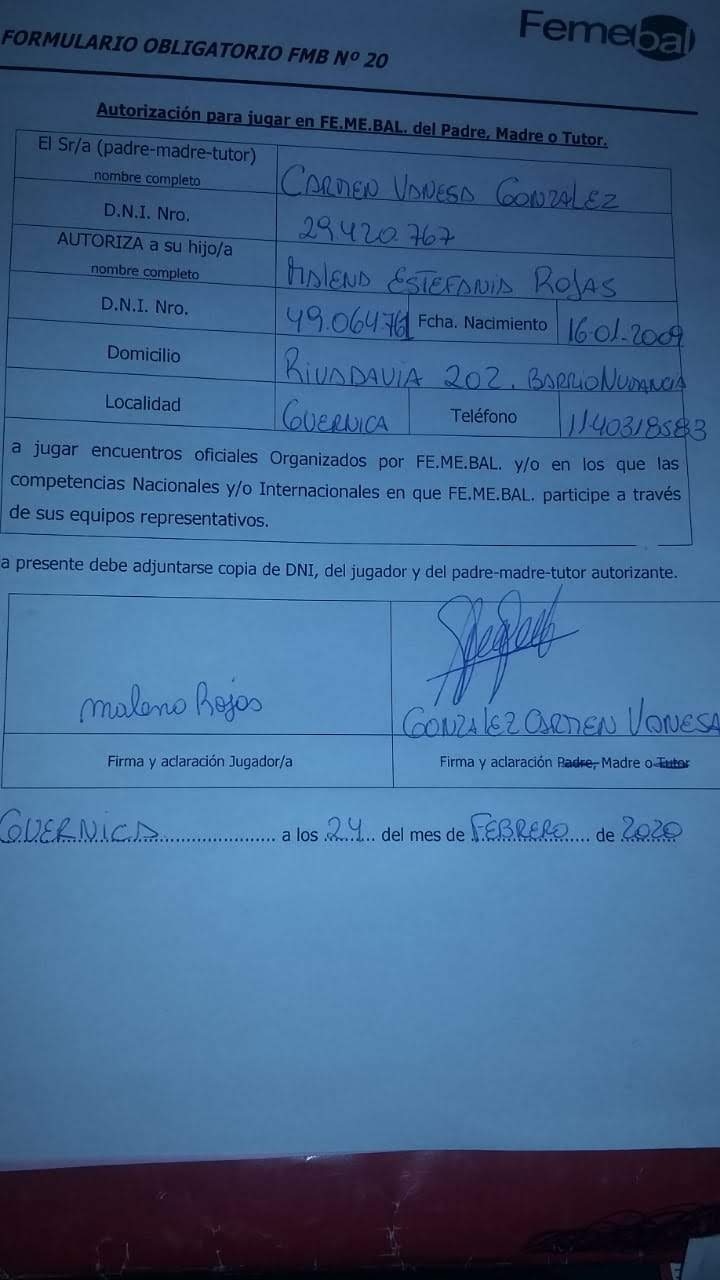 Femebal
FORMULARIO OBLIGATORIO FMB Nº 20
Autorización para jugar en FE.ME.BAL. del Padre, Madre o Tutor.
El Sr/a (padre-madre-tutor)
nombre completo
CARMEN VANESA GONZALEZ
D.N.I. Nro.
29.420.767
AUTORIZA a su hijo/a
nombre completo
MALENA ESTEFANIA ROJAS
D.N.I. Nro.
49.064.761
Fcha. Nacimiento
16-01-2009
Domicilio
RIVADAVIA 202. BARRIO
Localidad
GUERNICA
Teléfono
1140318583
a jugar encuentros oficiales Organizados por FE.ME.BAL. y/o en los que las
competencias Nacionales y/o Internacionales en que FE.ME.BAL. participe a través
de sus equipos representativos.
a presente debe adjuntarse copia de DNI, del jugador y del padre-madre-tutor autorizante.
malena Rojas
GONZALEZ CARMEN VANESA
Firma y aclaración Jugador/a
Firma y aclaración Padre, Madre o Tutor
GUERNICA........................ a los 24 .. del mes de FEBRERO..... de 2020